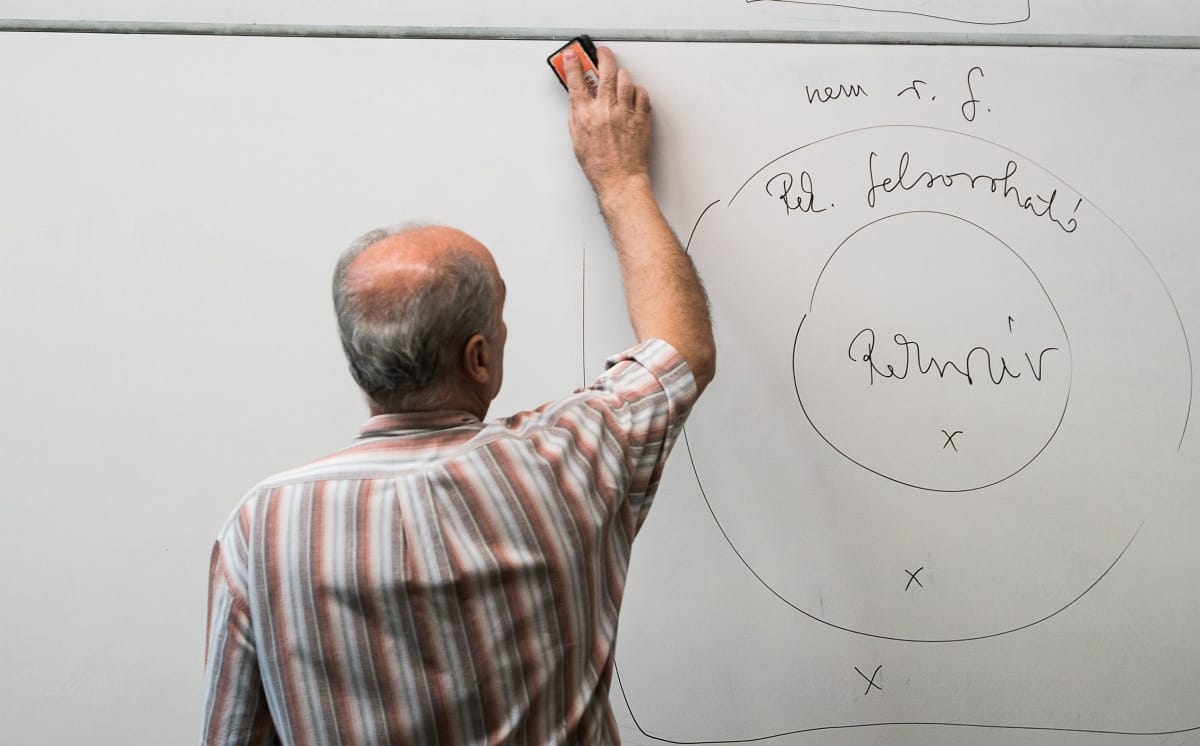 nem r. f.
Rek. felsorolható
Rekurzív
x
x
x